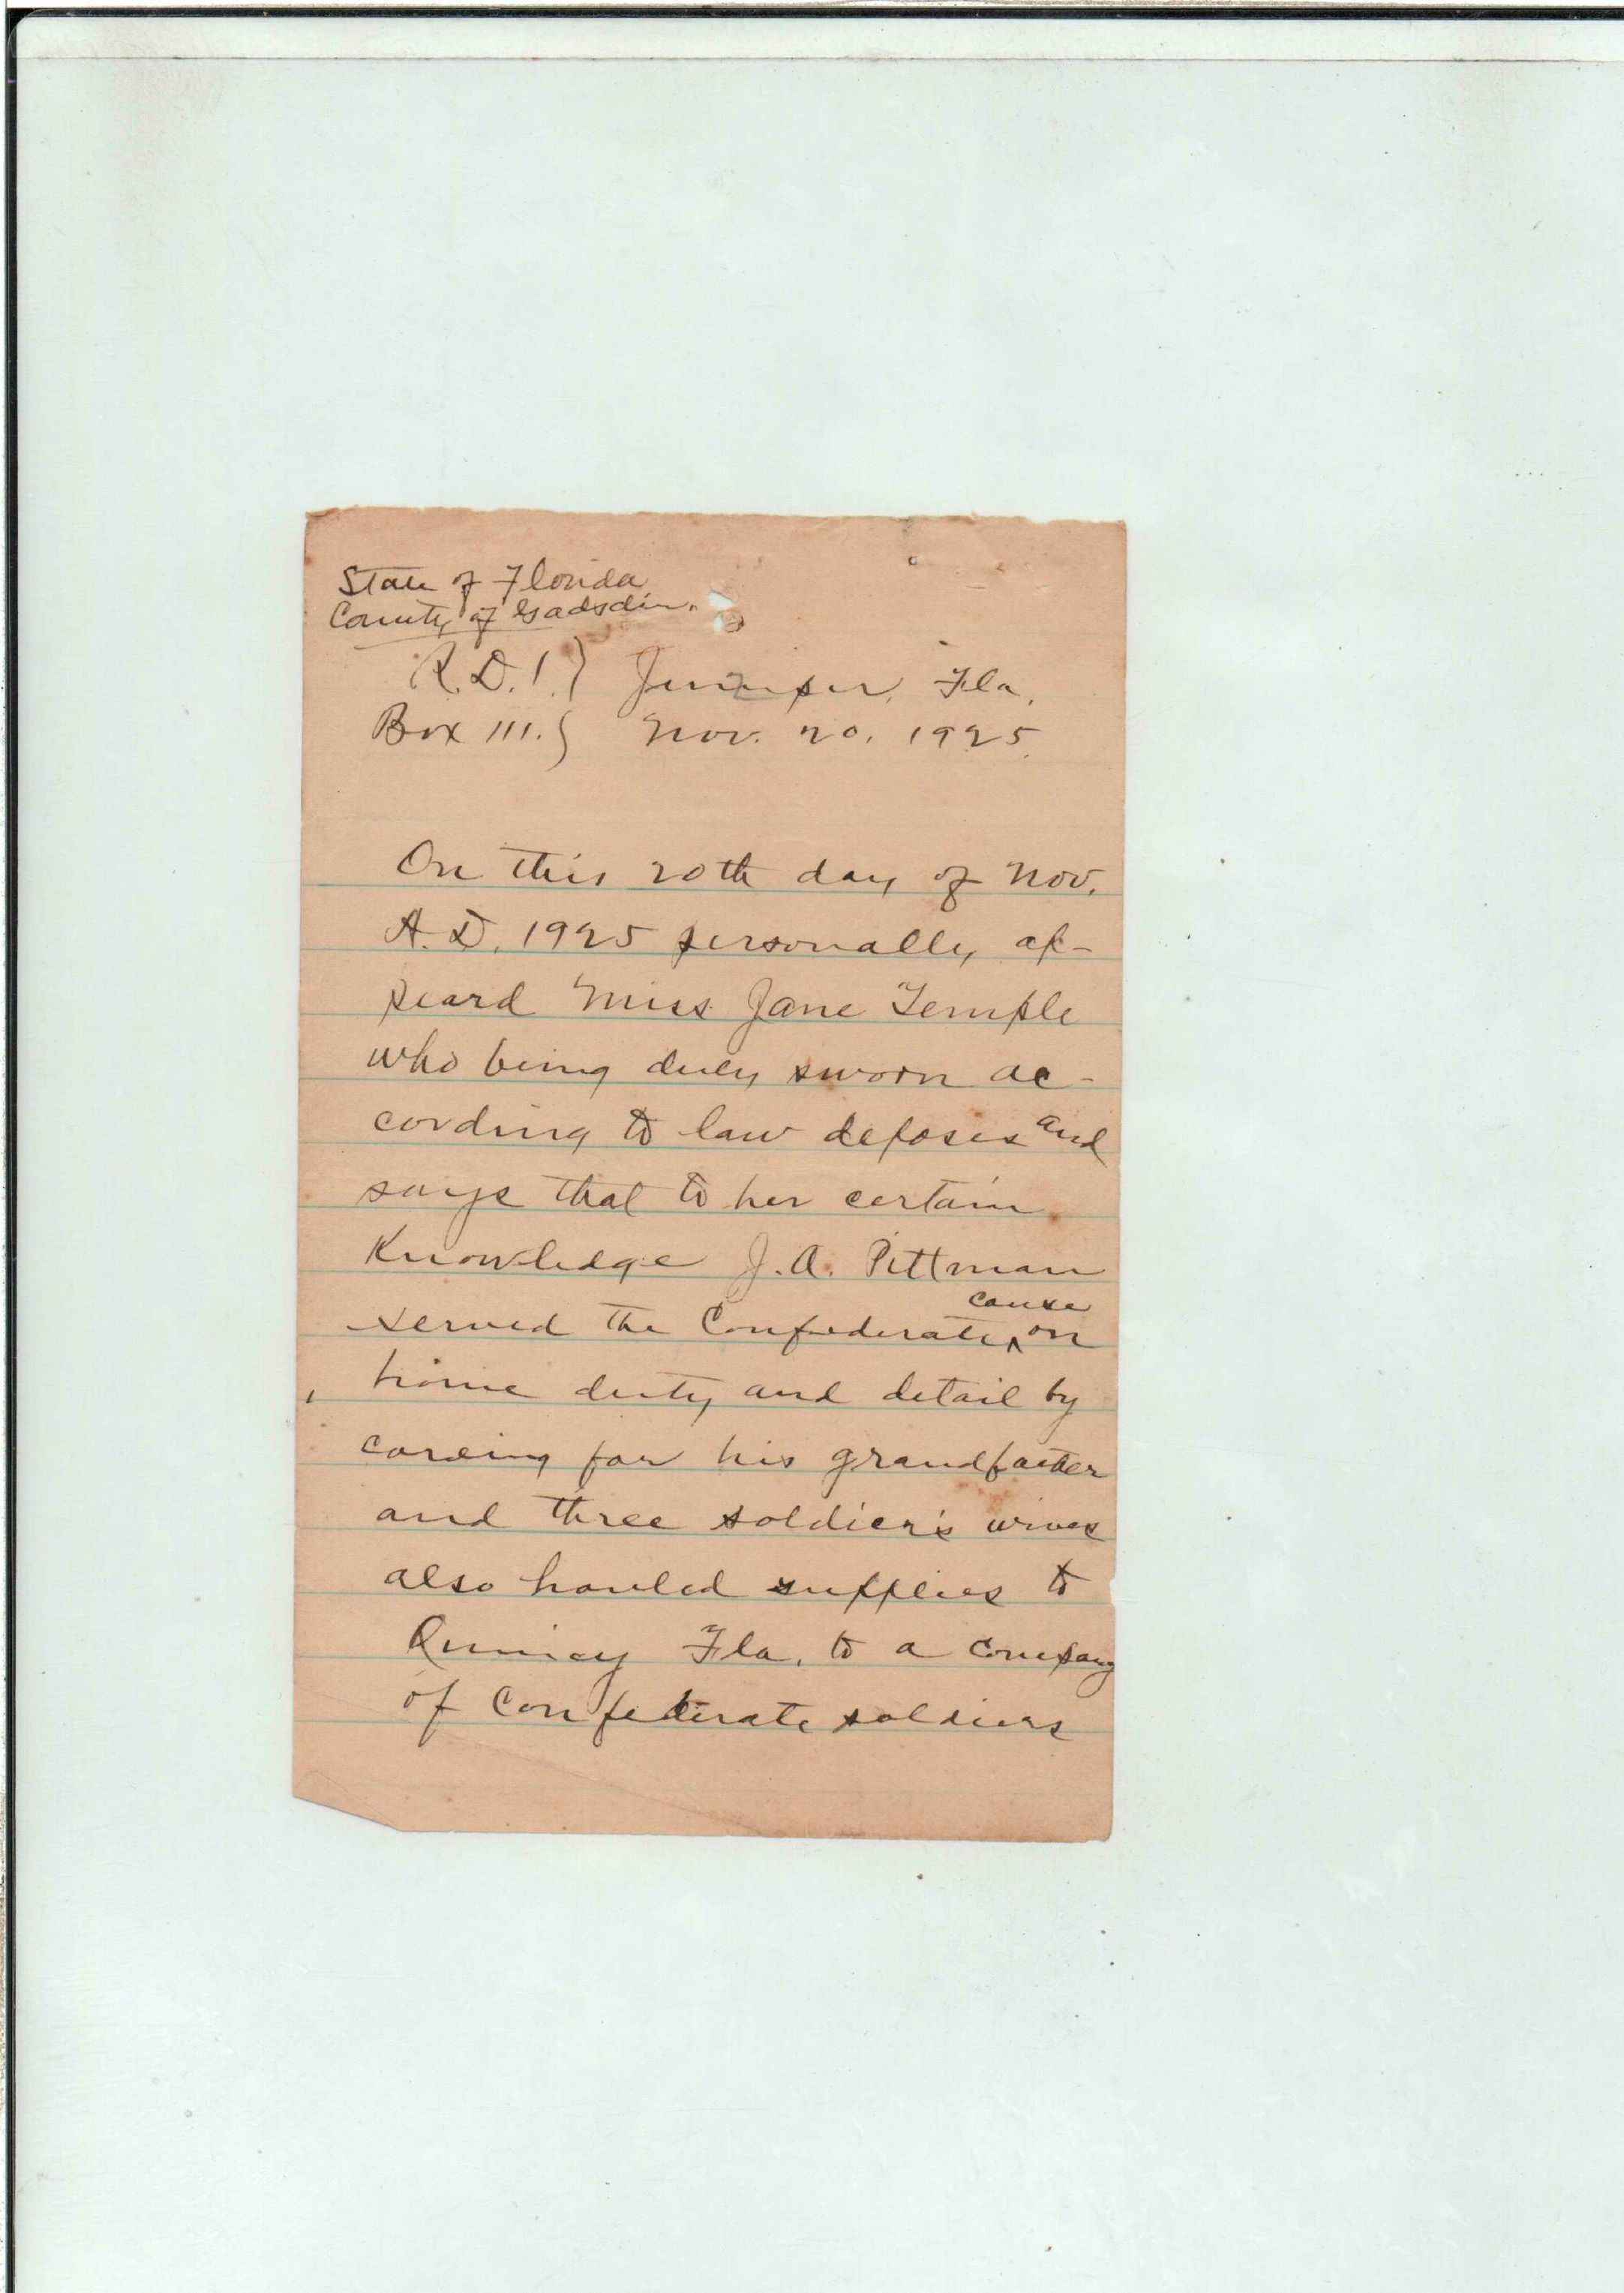 State of Florida
County of Gadsden.
R.D. 1. } Juniper, Fla.
Box 111. } Nov. 20, 1925.
On this 20th day of Nov.
A.D. 1925 personally ap-
peard Miss Jane Temple
who being duly sworn ac-
cording to law deposes and
says that to her certain
Knowledge J. A. Pittman
served the Confederate ^ cause on
home duty and detail by
careing for his grandfather
and three soldier's wives
also hauled supplies to
Quincy Fla. to a company
of Confederate soldiers